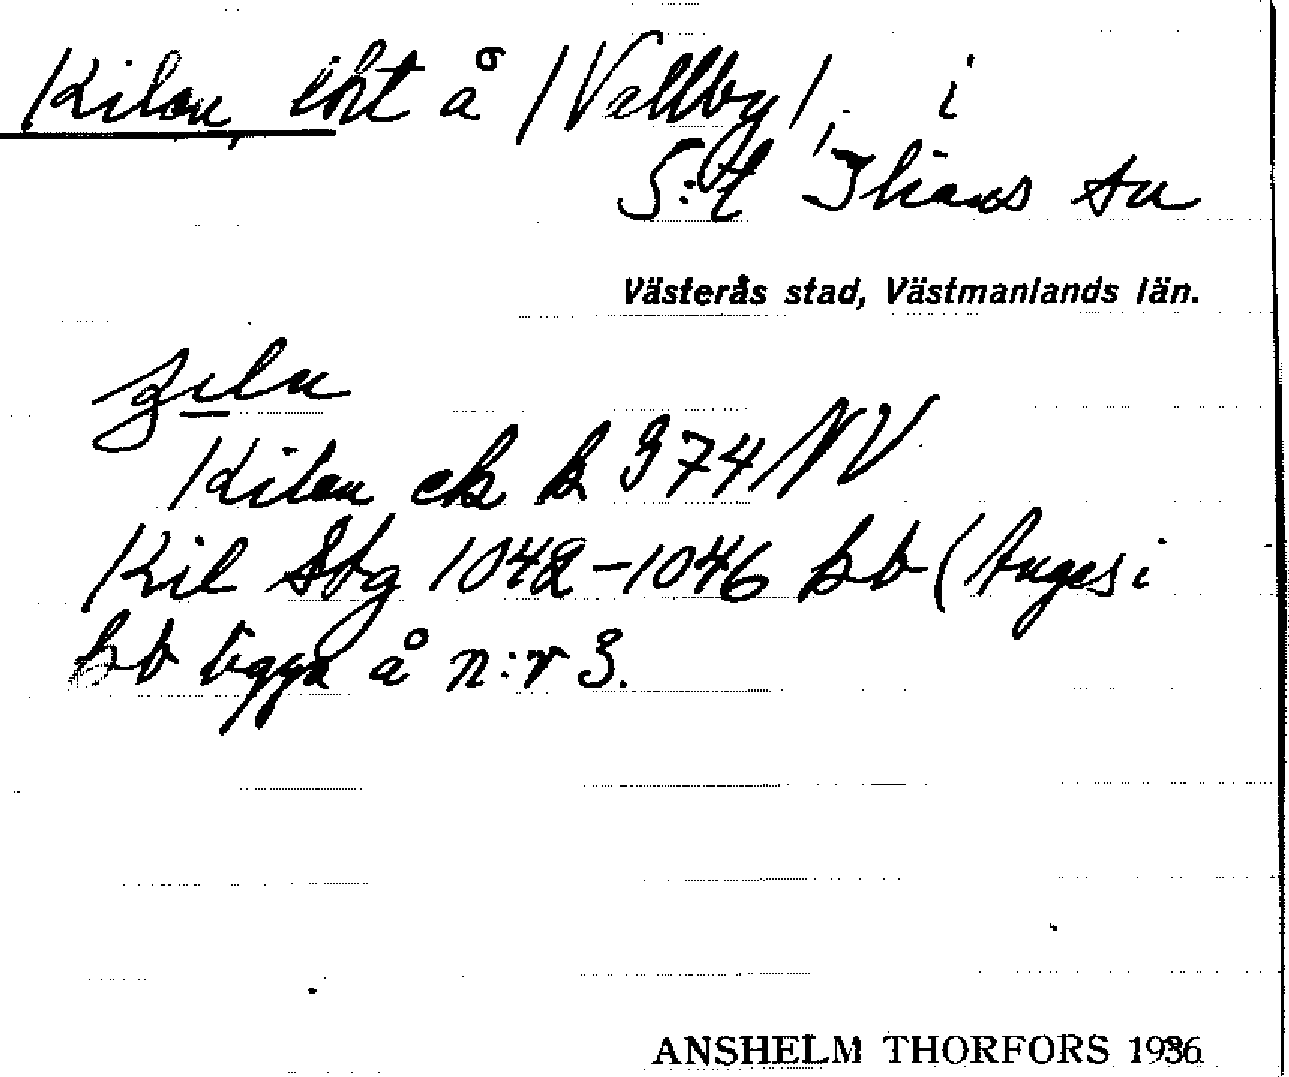 Kilen, löt å /Vallby/, i
S:t Ilians sn
Västerås stad, Västmanlands län.
Kilen ek k 374 NV
Kil Stg 1042-1046 hb (Anges i
hb ligga å n:r 3.
ANSHELM THORFORS 1936